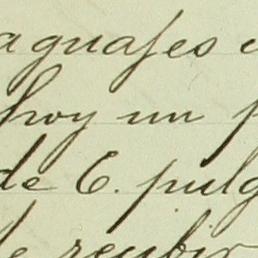 aguajes
hoy un
de 6. pulg
recibir